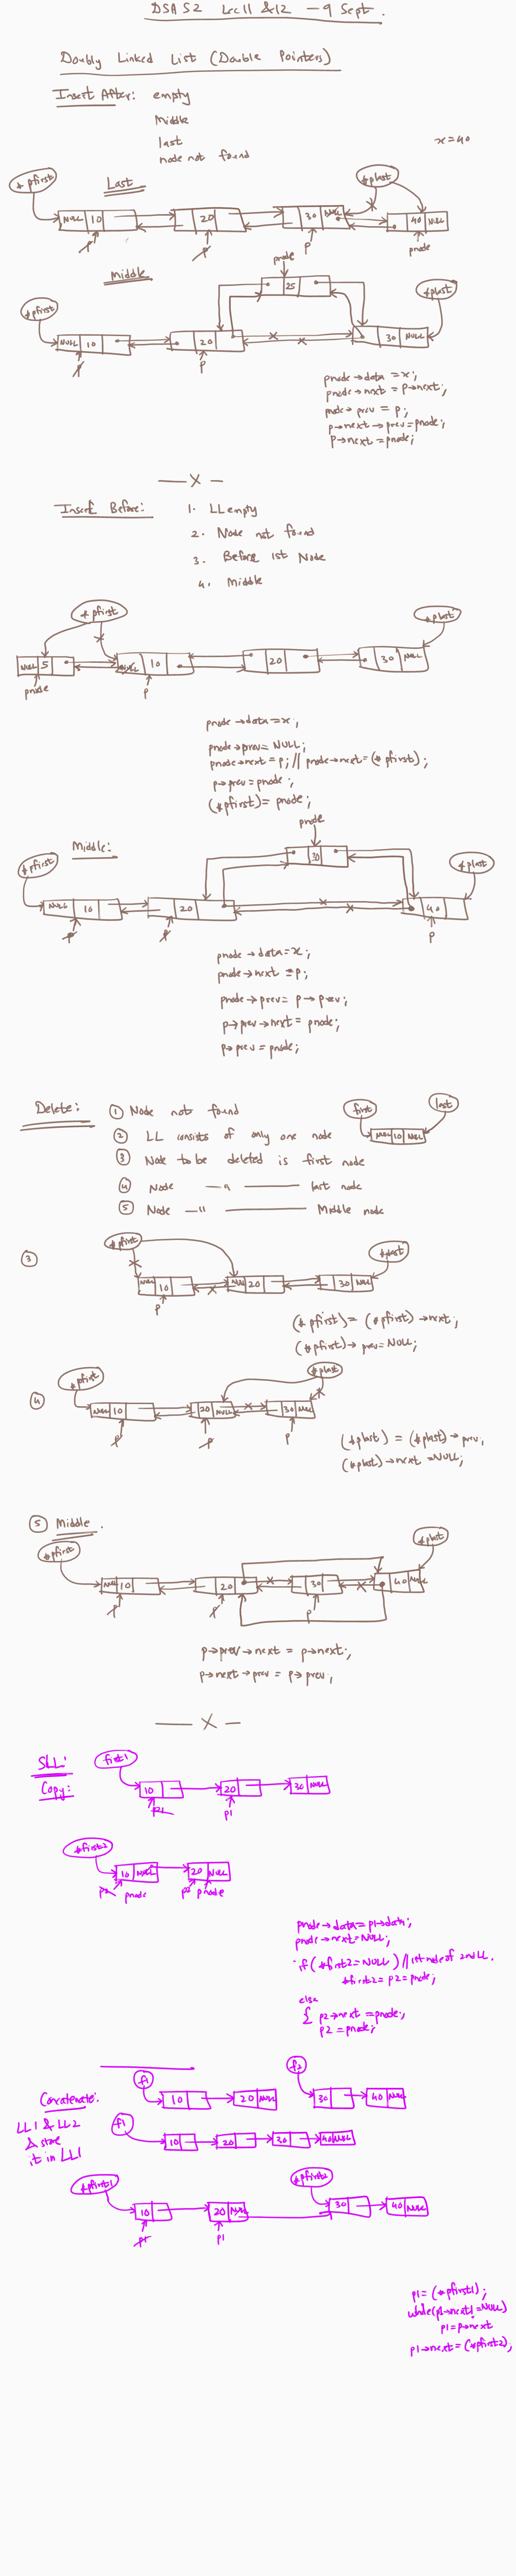 DSA S2 Lec 11 & 12 - 9 Sept.
Doubly Linked List (Double Pointers)
Insert After: empty
Middle
last
node not found
x=40
*pfirst
Last
*plast
NULL 10 20 30 NULL 40 NULL
p p p pnode
Middle
pnode
25
*pfirst
*plast
NULL 10 20 30 NULL
p p
pnode→data = x;
pnode→next = p→next;
pnode→prev = p;
p→next→prev = pnode;
p→next = pnode;
— X —
Insert Before: 1. LL empty
2. Node not found
3. Before 1st Node
4. Middle
*pfirst
*plast
NULL 5 NULL 10 20 30 NULL
pnode p
pnode→data = x;
pnode→prev = NULL;
pnode→next = p; // pnode→next = (*pfirst);
p→prev = pnode;
(*pfirst) = pnode;
pnode
Middle:
30
*pfirst
*plast
NULL 10 20 40
p p p
pnode→data = x;
pnode→next = p;
pnode→prev = p→prev;
p→prev→next = pnode;
p→prev = pnode;
Delete: ① Node not found
② LL consists of only one node
first last
NULL 10 NULL
③ Node to be deleted is first node
④ Node —"— last node
⑤ Node —"— Middle node
③
*pfirst
*plast
NULL 10 NULL 20 30 NULL
p
(*pfirst) = (*pfirst)→next;
(*pfirst)→prev = NULL;
④
*pfirst
*plast
NULL 10 20 NULL 30 NULL
p p p
(*plast) = (*plast)→prev;
(*plast)→next = NULL;
⑤ Middle.
*pfirst
*plast
NULL 10 20 30 40 NULL
p p p
p→prev→next = p→next;
p→next→prev = p→prev;
— X —
SLL:
Copy:
first1
10 20 30 NULL
p1 p1
*first2
10 NULL 20 NULL
p2 pnode p2 pnode
pnode→data = p1→data;
pnode→next = NULL;
if (*first2 = NULL) // 1st node of 2nd LL.
*first2 = p2 = pnode;
else
{ p2→next = pnode;
p2 = pnode;
Concatenate:
LL1 & LL2
& store
it in LL1
f1
f2
10 20 NULL 30 40 NULL
f1
10 20 30 40 NULL
*pfirst1
*pfirst2
10 20 NULL 30 40 NULL
p1 p1
p1 = (*pfirst1);
while(p1→next != NULL)
p1 = p→next
p1→next = (*pfirst2);